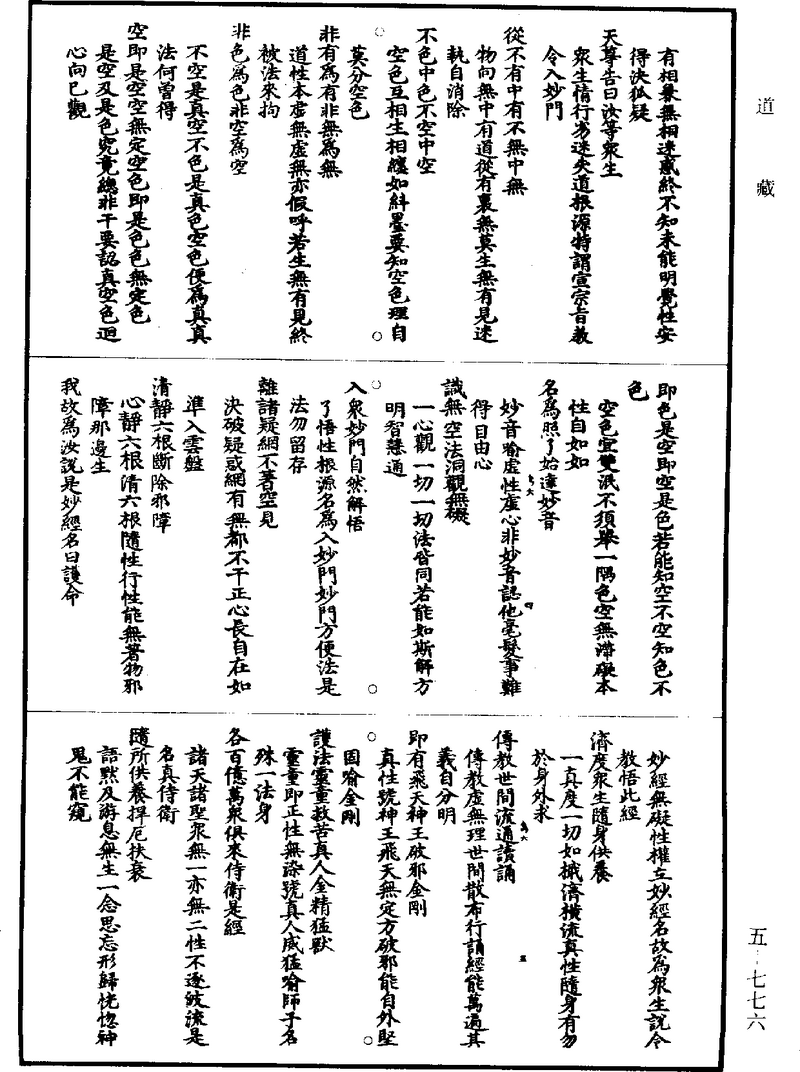 道藏
有相兼無相迷惑終不知未能明覺性安
得決狐疑
天尊告曰汝等衆生
衆生情行劣迷失道根源特謂宣宗旨教
令入妙門
從不有中有不無中無
物向無中有道從有裏無莫生無有見迷
執自消除
不色中色不空中空
空色互相生相纏如糾墨要知空色理自
莫分空色
非有爲有非無爲無
道性本虛無虛無亦假呼若生無有見終
被法來拘
非色爲色非空爲空
不空是真空不色是真色空色便爲真真
法何曾得
空即是空空無定空色即是色色無定色
是空及是色究竟總非干要認真空色迴
心向已觀
即色是空即空是色若能知空不空知色不
色
空色宜雙泯不須舉一隅色空無滯礙本
性自如如
名爲照了始達妙音
妙音喻虛性虛心非妙音認他毫髮事難
得自由心
識無空法洞觀無礙
一心觀一切一切法皆同若能如斯解方
明智慧通
入衆妙門自然解悟
了悟性根源名爲入妙門妙門方便法是
法勿留存
離諸疑網不著空見
決破疑惑網有無都不干正心長自在如
準入雲盤
清靜六根斷除邪障
心靜六根清六根隨性行性能無著物邪
障那邊生
我故爲汝說是妙經名曰護命
妙經無礙性權立妙經名故爲衆生說令
教悟此經
濟度衆生隨身供養
一真度一切如栰濟橫流真性隨身有勿
於身外求
傳教世間流通讀誦
傳教虛無理世間散布行誦經能萬遍其
義自分明
即有飛天神王破邪金剛
真性號神王飛天無定方破邪能自外堅
固喻金剛
護法靈童救苦真人金精猛獸
靈童即正性無染號真人威猛喻師子名
殊一法身
各百億萬衆俱來侍衛是經
諸天諸聖衆無一亦無二性不逐波流是
名真侍衛
隨所供養捍厄扶衰
語默及游息無生一念思忘形歸恍惚神
鬼不能窺
五-七七六